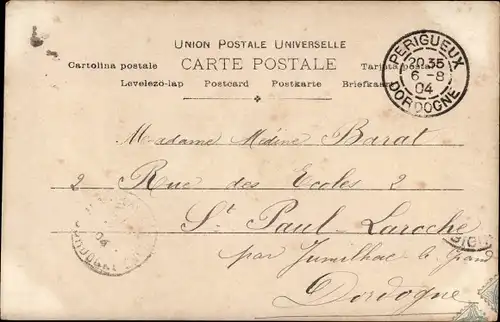 UNION POSTALE UNIVERSELLE
CARTE POSTALE
Cartolina postale Tarjeta postal
Levelezö-lap Postcard Postkarte Briefkaart
PERIGUEUX
20 35
6 - 8
04
DORDOGNE
Madame Médéric Barat
2 Rue des Ecoles 2
St Paul-Laroche
par Jumilhac le Grand
Dordogne
04